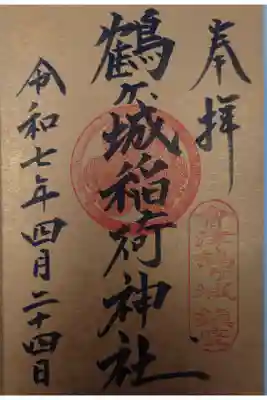 奉拝
鶴ヶ城稲荷神社
令和七年四月二十四日